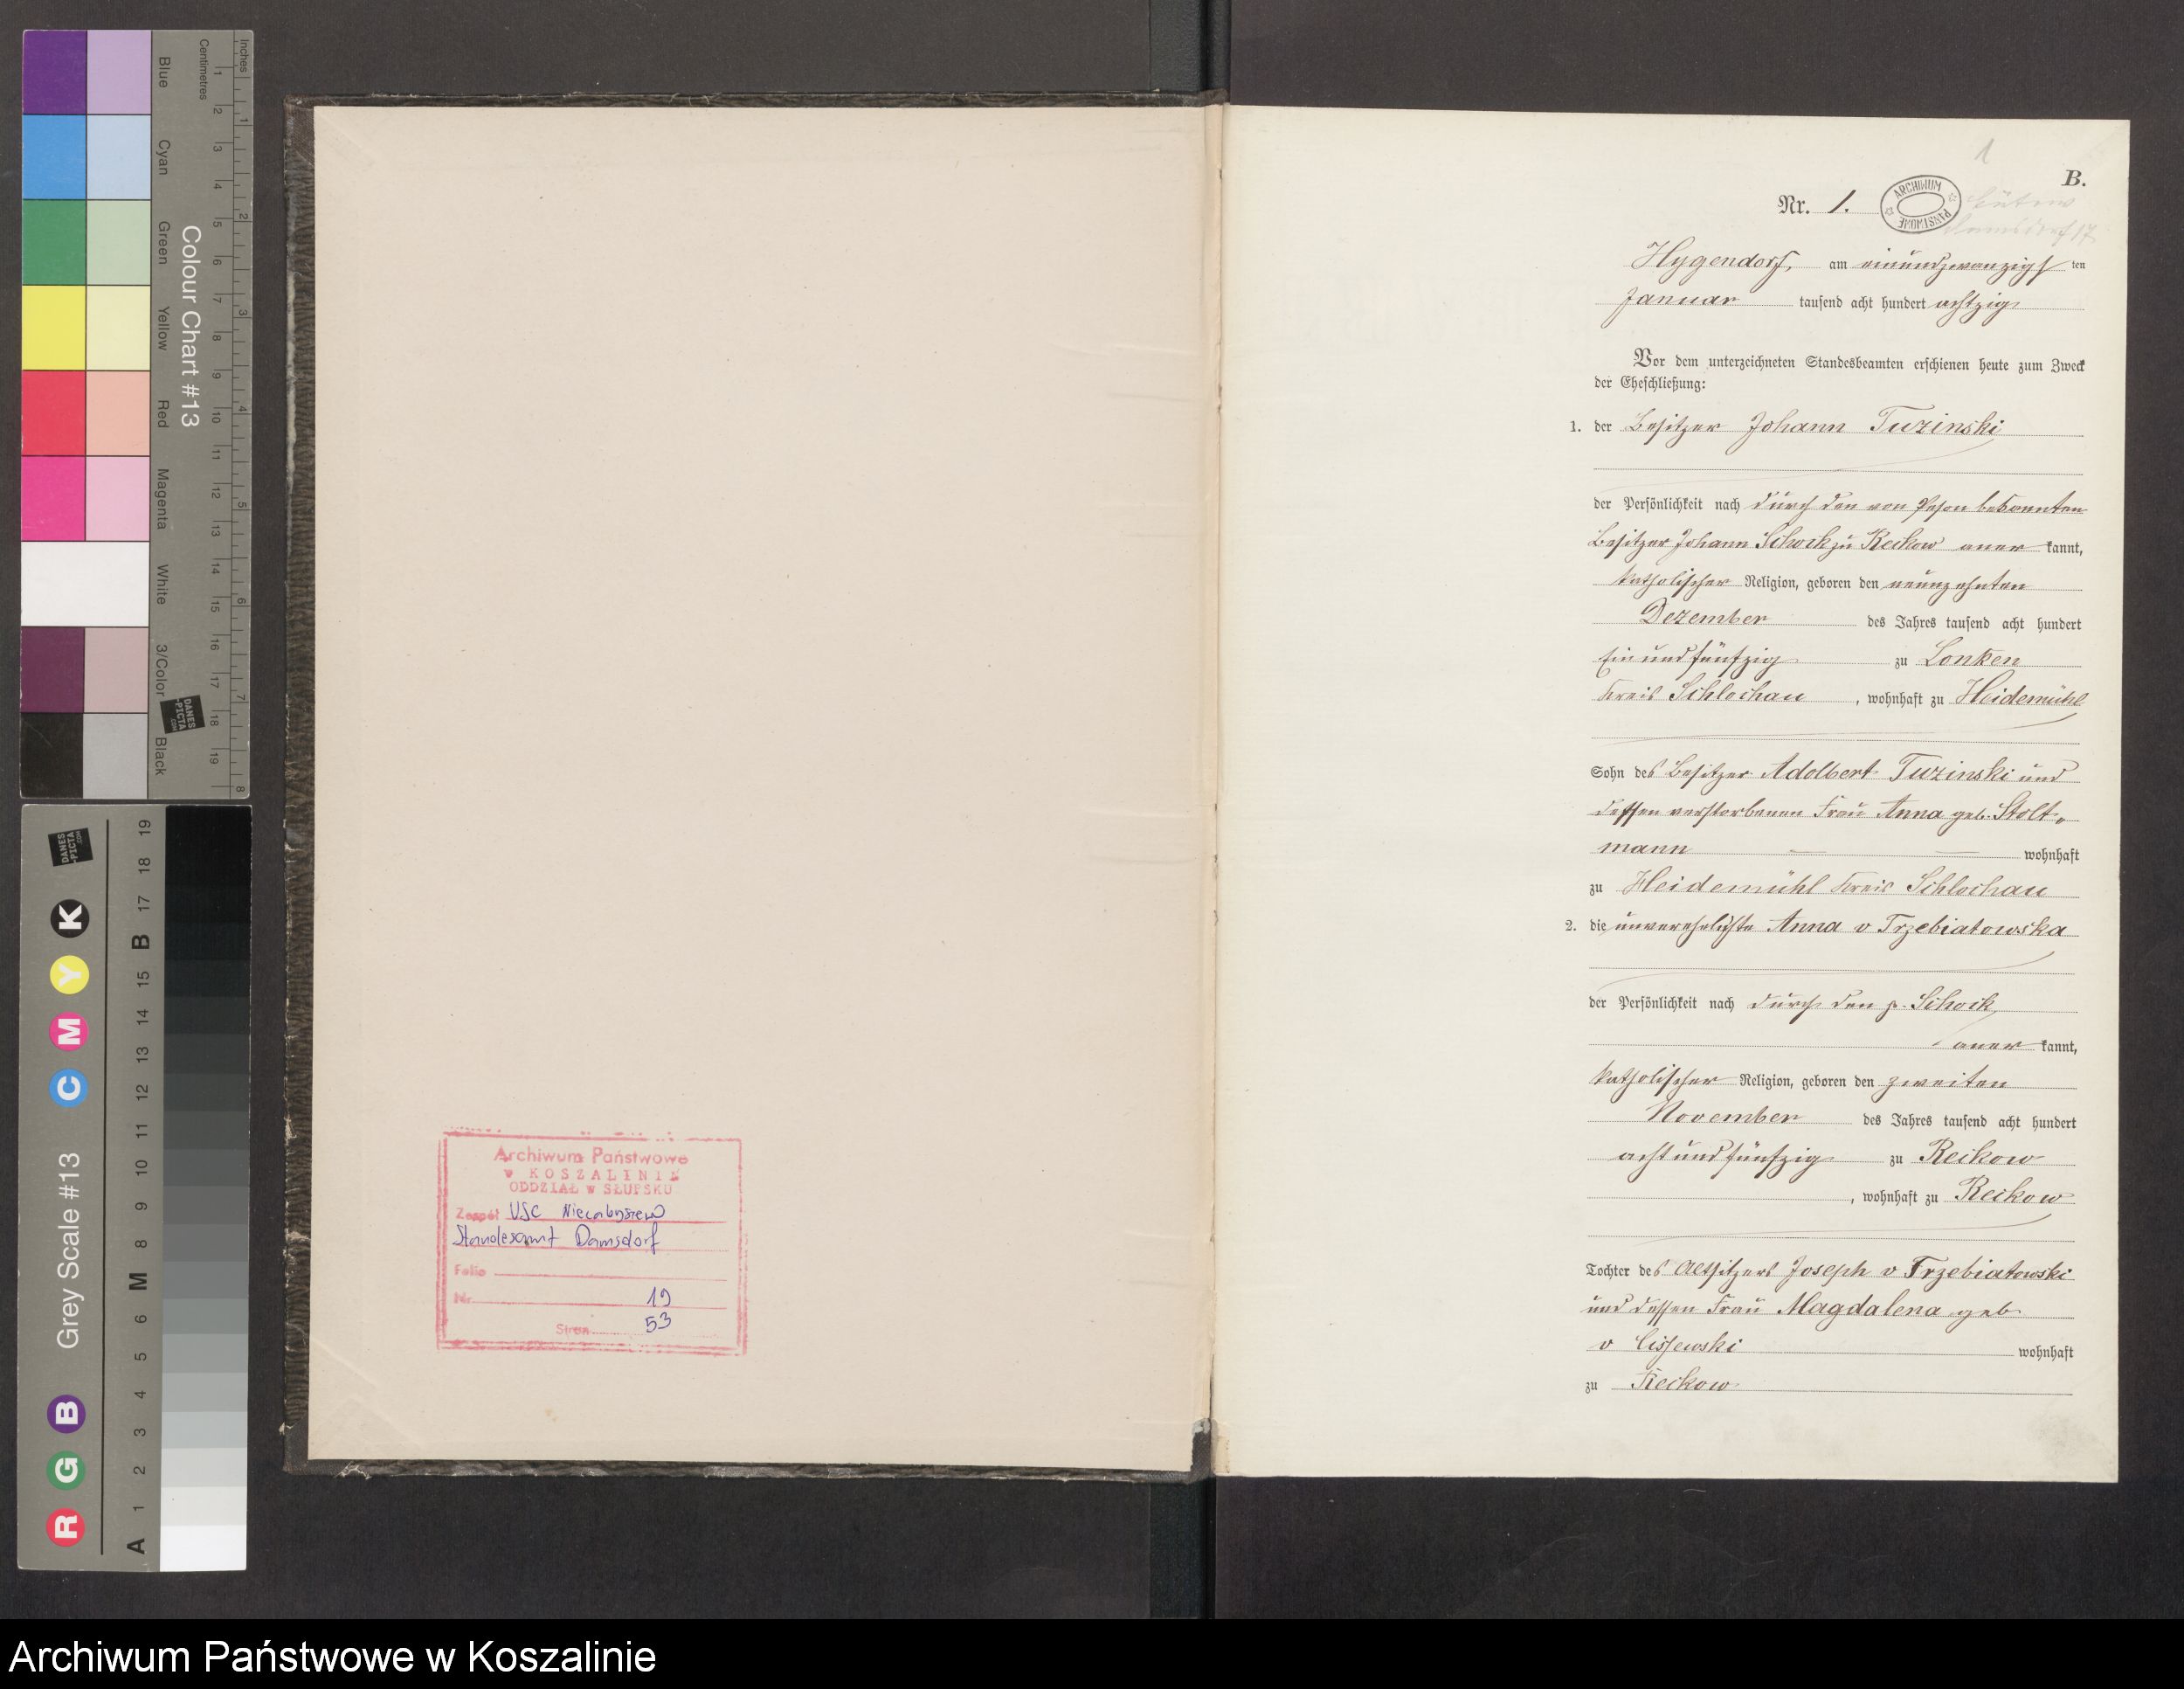 Inches
Centimetres
Colour Chart #13
Blue
Cyan
Green
Yellow
Red
Magenta
White
3/Color
Black
DANES
-PICTA
.COM
1 2 3 4 5 6 7 8 9 10 11 12 13 14 15 16 17 18 19
1 2 3 4 5 6 7 8
Grey Scale #13
R G B
C M Y K
A 1 2 3 4 5 6 M 8 9 10 11 12 13 14 15 B 17 18 19
Archiwum Państwowe
w KOSZALINIE
ODDZIAŁ w SŁUPSKU
Zespół USC Niezabyszewo
Standesamt Damsdorf
Folio
Nr. 19
Stron 53
1
B.
Nr. 1.
ARCHIWUM PAŃSTWOWE
Bütow
Damsdorf 17
Hygendorf, am einundzwanzigsten
Januar tausend acht hundert achtzig
Vor dem unterzeichneten Standesbeamten erschienen heute zum Zweck
der Eheschließung:
1. der Besitzer Johann Tuzinski
der Persönlichkeit nach durch den von Person bekannten
Besitzer Johann Schock zu Reckow anerkannt,
katholischer Religion, geboren den neunzehnten
Dezember des Jahres tausend acht hundert
ein und fünfzig zu Lonken
Kreis Schlochau, wohnhaft zu Heidemühl
Sohn des Besitzer Adolbert Tuzinski und
dessen verstorbenen Frau Anna geb. Stolt-
mann wohnhaft
zu Heidemühl Kreis Schlochau
2. die unverehelichte Anna v Trzebiatowska
der Persönlichkeit nach durch den p. Schock
anerkannt,
katholischer Religion, geboren den zweiten
November des Jahres tausend acht hundert
acht und fünfzig zu Reckow
, wohnhaft zu Reckow
Tochter des Altsitzers Joseph v Trzebiatowski
und dessen Frau Magdalena geb
v Cissewski wohnhaft
zu Reckow
Archiwum Państwowe w Koszalinie